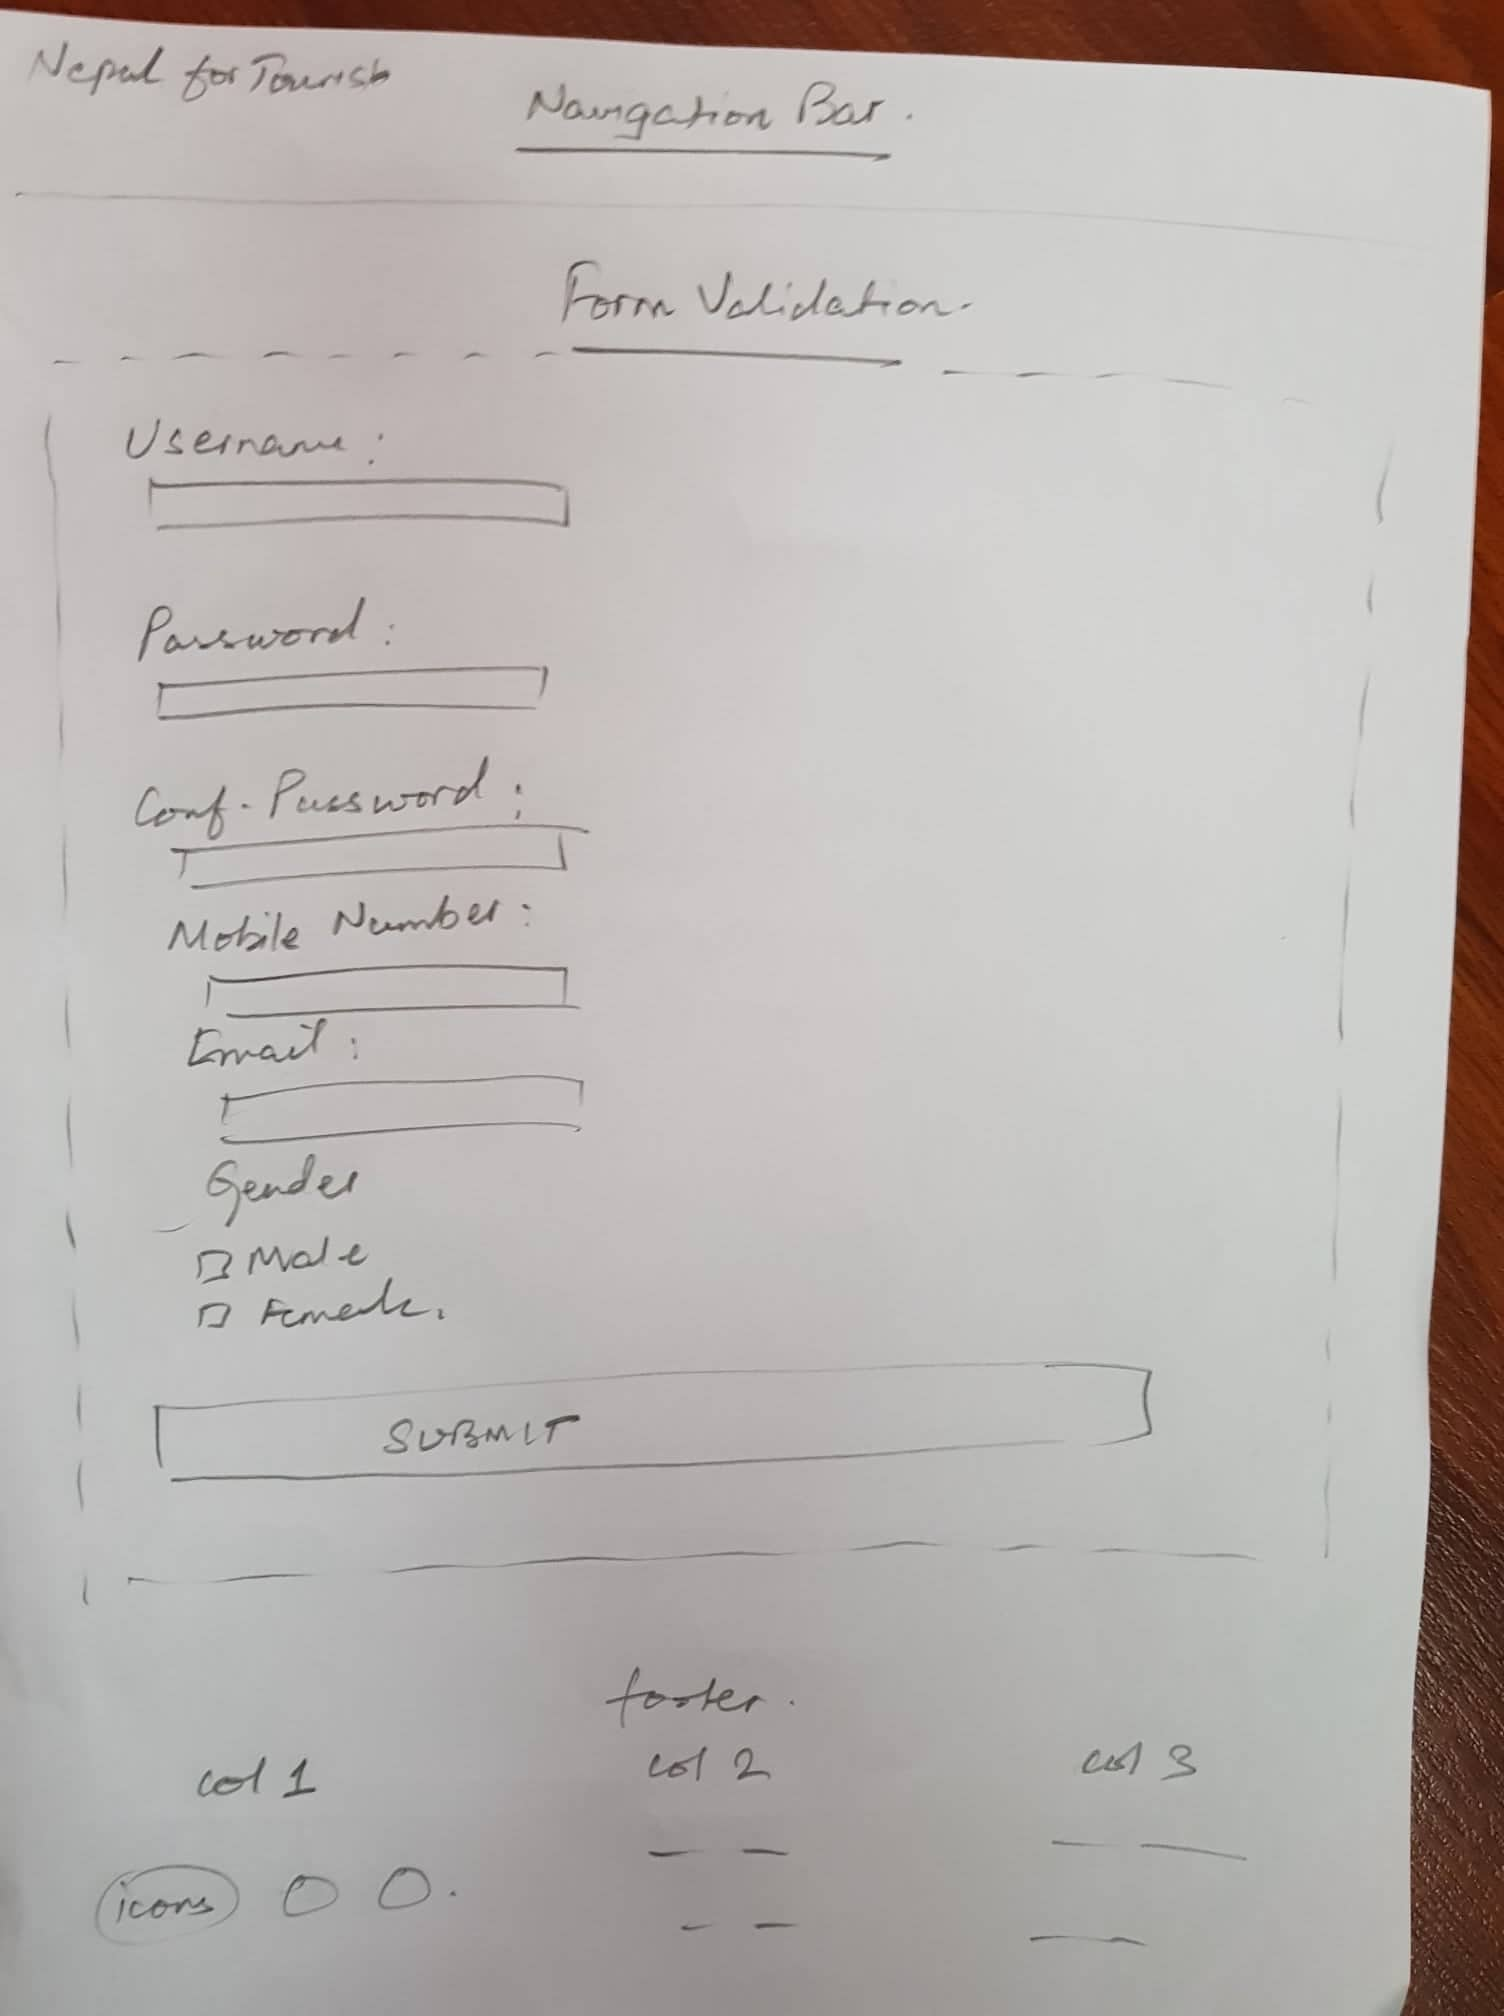 Nepal for Tourist
Navigation Bar.
Form Validation.
Username:
Password:
Conf. Password:
Mobile Number:
Email:
Gender
Male
Female.
SUBMIT
footer.
col 1 col 2 col 3
icons